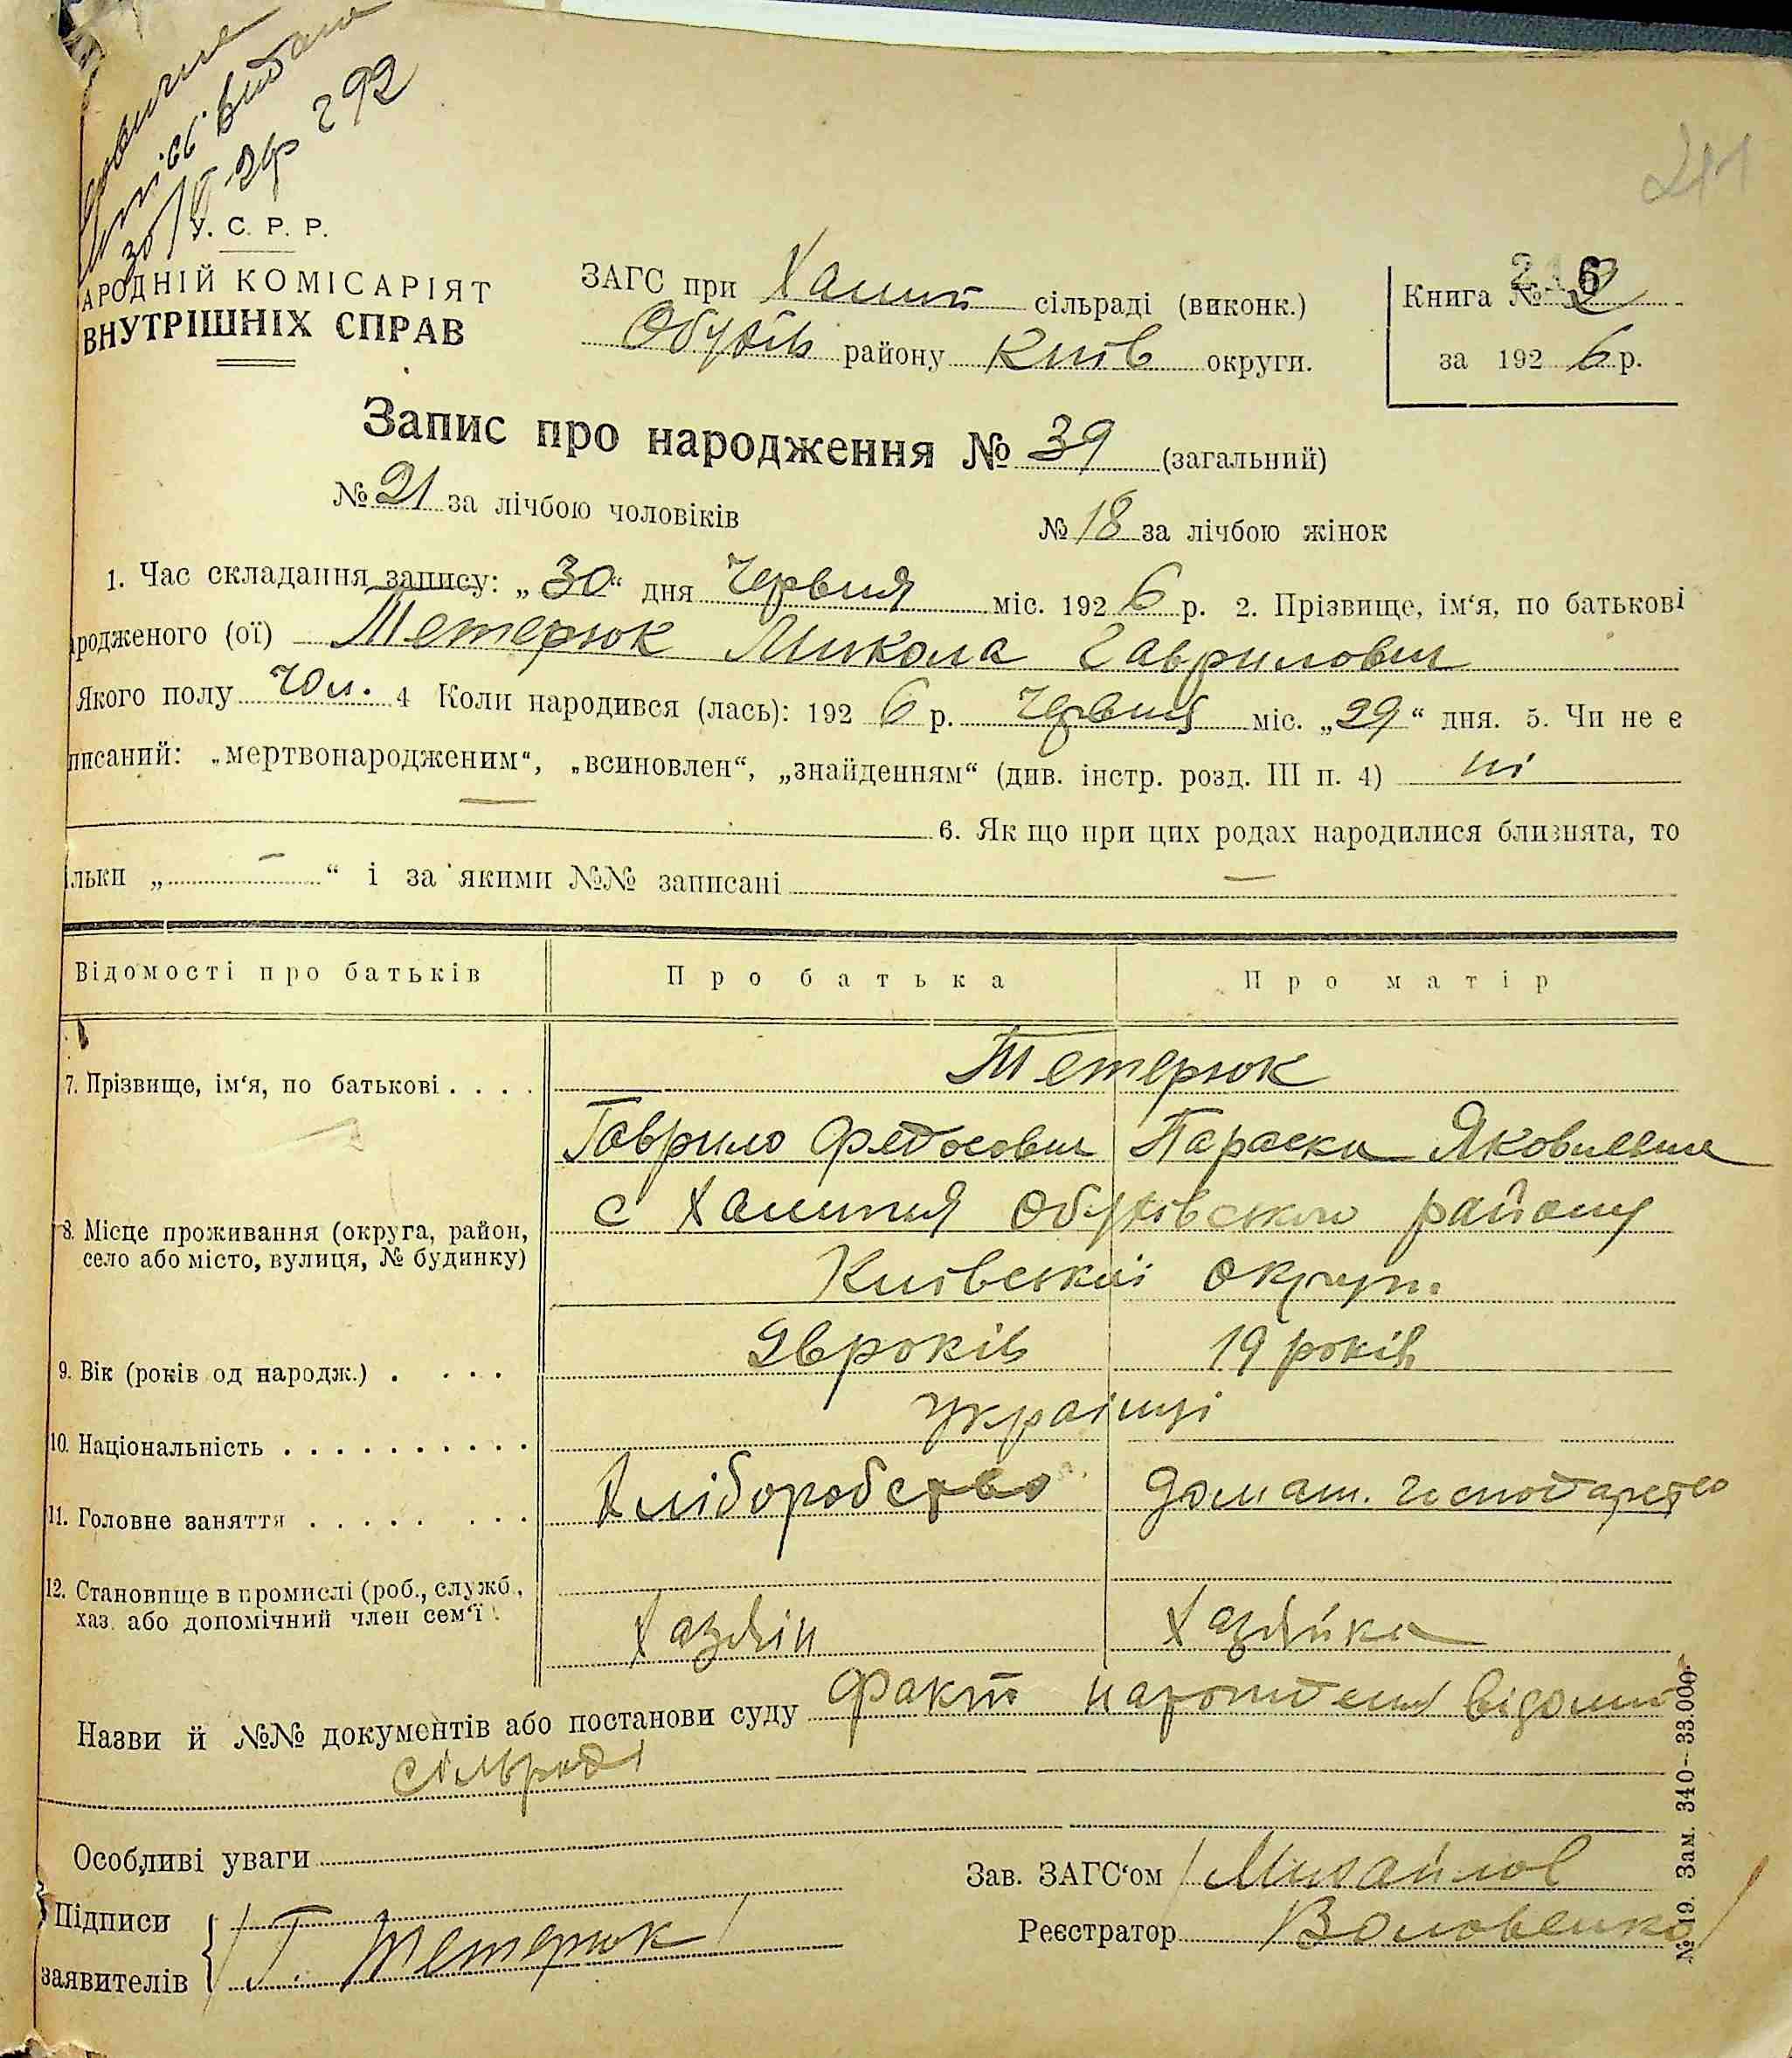 видано
292
211
У. С. Р. Р.
АРОДНІЙ КОМІСАРІЯТ
ВНУТРІШНІХ СПРАВ
ЗАГС при Халип сільраді (виконк.)
Обухів району Київ округи.
Книга № 2
за 1926 р.
Запис про народження № 39 (загальний)
№ 21 за лічбою чоловіків № 18 за лічбою жінок
1. Час складання запису: „30“ дня червня міс. 1926 р. 2. Прізвище, ім‘я, по батькові
родженого (ої) Тетерюк Микола Гаврилович
Якого полу чол. 4 Коли народився (лась): 1926 р. червня міс. „29“ дня. 5. Чи не є
писаний: „мертвонародженим“, „всиновлен“, „знайденням“ (див. інстр. розд. III п. 4) ні
6. Як що при цих родах народилися близнята, то
ільки „ — “ і за якими №№ записані —
Відомості про батьків Про батька Про матір
7. Прізвище, ім‘я, по батькові . . . . Тетерюк
Гаврило Федосович Параска Яковлевна
8. Місце проживання (округа, район, с Халипня Обухівського району
село або місто, вулиця, № будинку) Київської округи
9. Вік (років од народж.) . . . . 26 років 19 років
10. Національність . . . . . . . . . . українці
11. Головне заняття . . . . . . . . Хліборобство домаш. господарство
12. Становище в промислі (роб., служб.,
хаз. або допомічний член сем‘ї . Хазяїн Хазяйка
Назви й №№ документів або постанови суду Факт народження відомий
сільраді
Особливі уваги
Зав. ЗАГС‘ом Михайлов
Підписи
Реєстратор Воловенко
заявителів Г. Тетерюк
№ 19. Зам. 340—33.000.